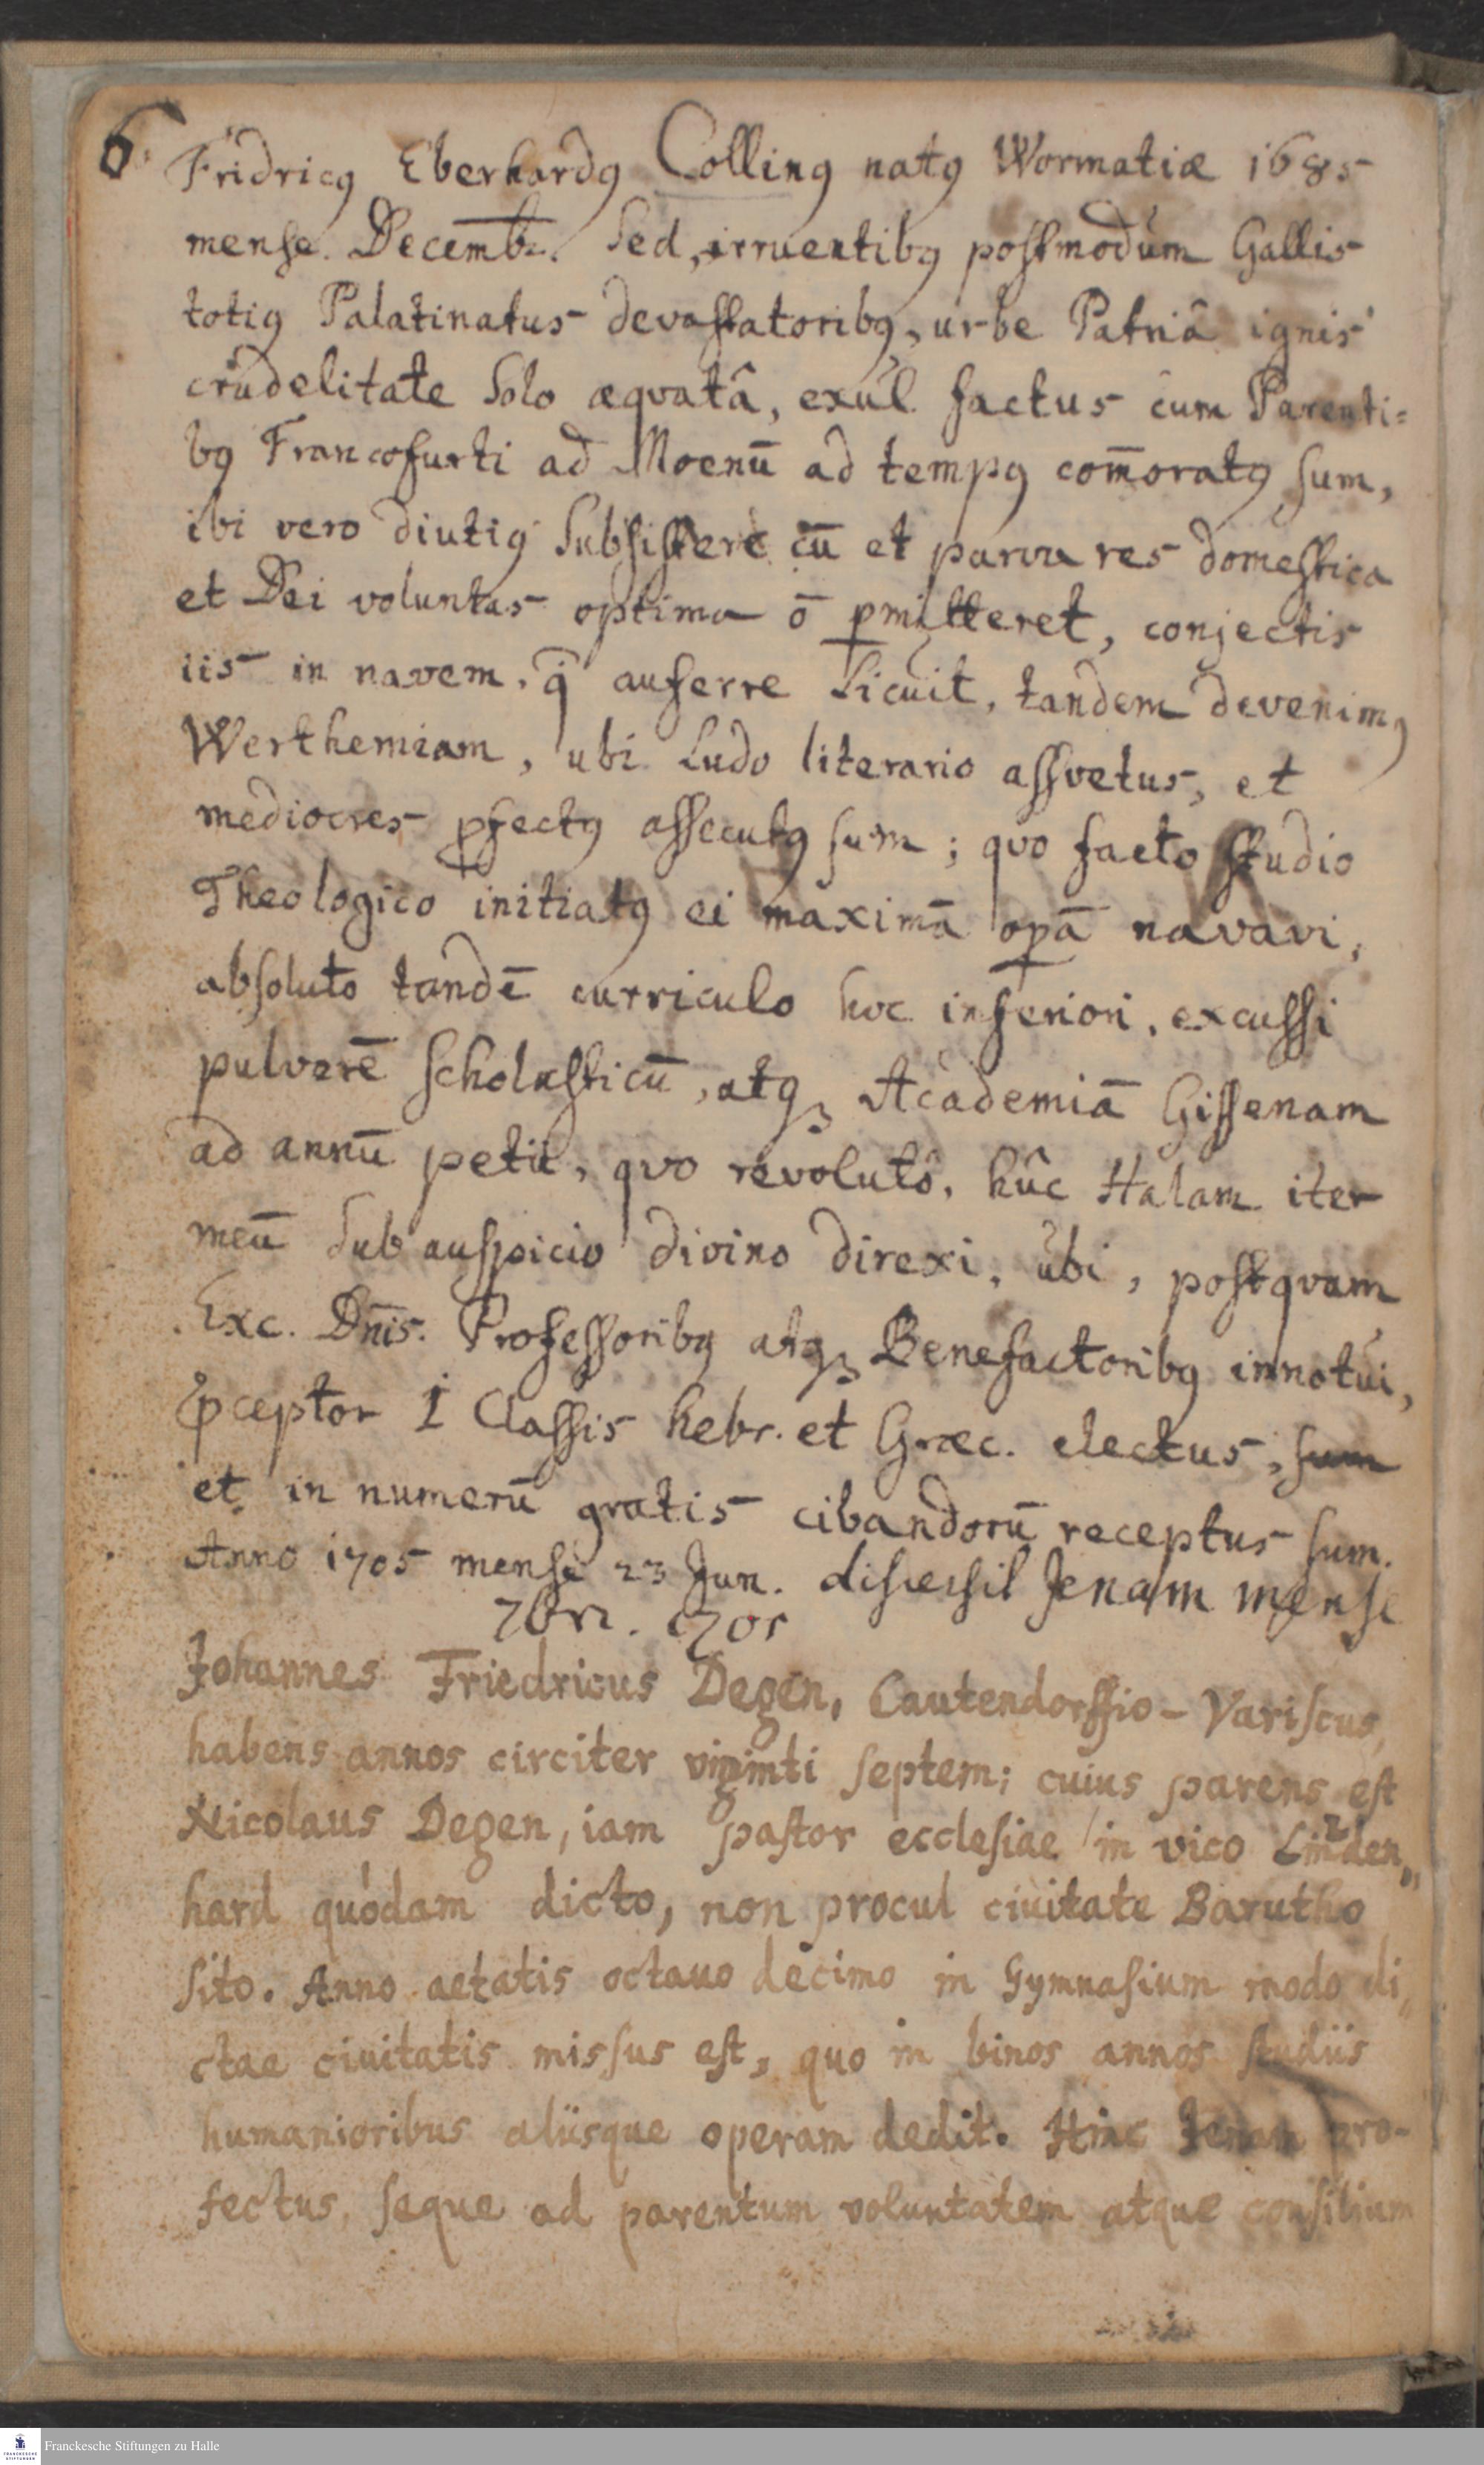 6. Fridricꝰ Eberhardꝰ Collinꝰ natꝰ Wormatiæ 1685
mense Decemb. Sed, irruentibꝰ postmodum Gallis
totiꝰ Palatinatus devastatoribꝰ, urbe Patriâ ignis
crudelitate solo æqvatâ, exul factus cum Parenti=
bꝰ Francofurti ad Moenū ad tempꝰ com̄oratꝰ sum,
ibi vero diutiꝰ subsistere cū et parva res domestica
et Dei voluntas optima ō ꝑmitteret, conjectis
iis in navem, q̄ auferre licuit, tandem devenimꝰ
Werthemiam, ubi ludo literario assvetus, et
mediocres ꝓfectꝰ assecutꝰ sum; qvo facto studio
Theologico initiatꝰ ei maximā oꝑā navavi,
absoluto tandē curriculo hoc inferiori, excussi
pulverē scholasticū, atqꝫ Academiā Gissenam
ad annū petii, qvo revolutô, hûc Halam iter
meū sub auspicio divino direxi, ubi, postqvam
Exc. Dn̄is. Professoribꝰ atqꝫ Benefactoribꝰ innotui,
Pꝛceptor I Classis hebr. et Græc. electus, sum
et in numerū gratis cibandorū receptus sum.
Anno 1705 mense 23 Jun. discessit Jenam mense
7br. 1705
Johannes Friedricus Degen, Cautendorffio-Variscus,
habens annos circiter viginti septem; cuius parens est
Nicolaus Degen, iam pastor ecclesiae in vico Linden„
hard quódam dicto, non procul ciuitate Barutho
sito. Anno aetatis octauo decimo in Gymnasium modo di„
ctae ciuitatis missus est, quo in binos annos studiis
humanioribus aliisque operam dedit. Hinc Jenam pro-
fectus, seque ad parentum voluntatem atque consilium
FRANCKESCHE STIFTUNGEN
Franckesche Stiftungen zu Halle